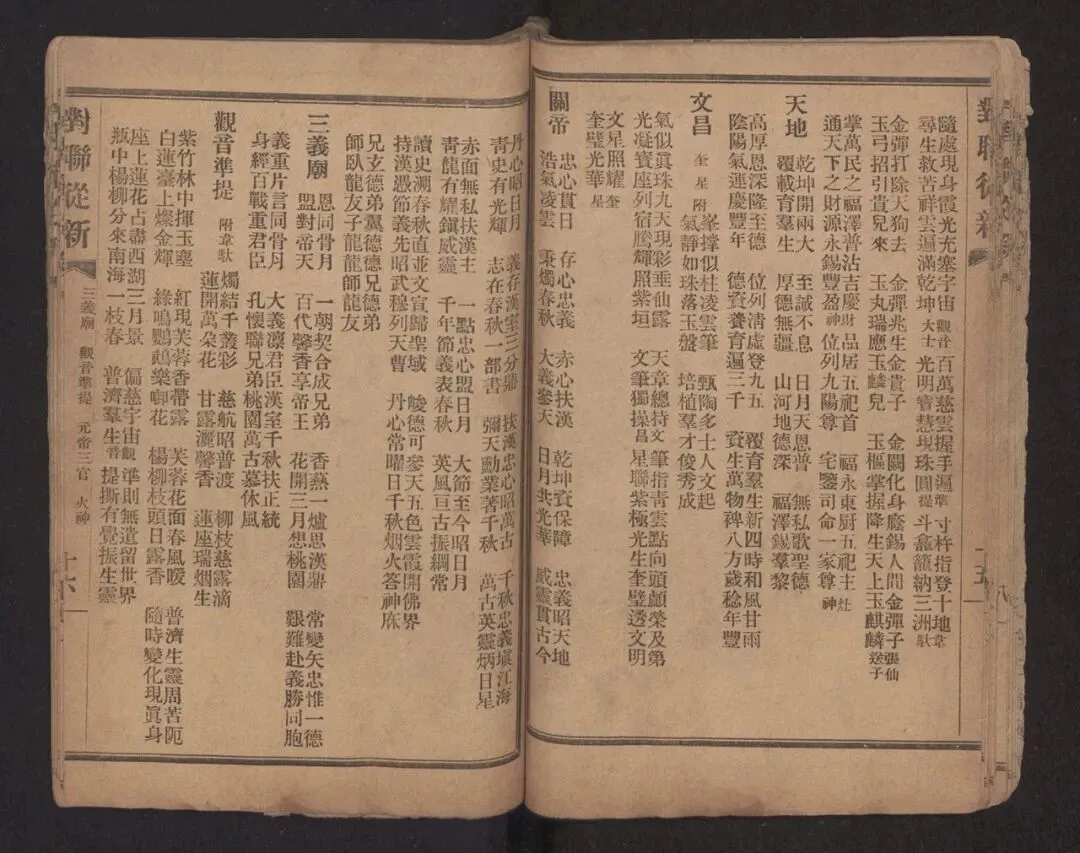 對聯從新
隨處現身霞光充塞宇宙 觀音 百萬慈雲握手手遍 準 寸杵指登十地 韋
尋生救苦祥雲遍滿乾坤 大士 光明寶慧現珠圓 提 斗龕籠納三洲 馱
金彈打除天狗去 金彈兆生金貴子 金闕化身廕錫人間金彈子 張仙
玉弓招引貴兒來 玉丸瑞應玉麟兒 玉樞掌握降生天上玉麒麟 送子
掌萬民之福澤善沾吉慶 財 品居五祀首 福永東厨五祀主 灶
通天下之財源永錫豐盈 神 位列九陽尊 宅鑒司命一家尊 神
天地 乾坤開兩大 至誠不息 日月天恩普 無私歌聖德
覆載育羣生 厚德無疆 山河地德深 福澤錫羣黎
高厚恩深隆至德 位列清虛登九五 覆育羣生新四時和風甘雨
陰陽氣運慶豐年 德資養育遍三千 資生萬物碑八方歲稔年豐
文昌 奎星附 峯撐似柱凌雲筆 甄陶多士人文起
氣靜如珠落玉盤 培植羣才俊秀成
氣似眞珠九天現彩垂仙露 天章總持 文 筆指青雲點向頭顱榮及第
光凝寶座列宿騰輝照紫垣 文筆獨操 昌 星聯紫極光生奎璧透文明
文星照耀 奎
奎璧光華 星
關帝 忠心貫日 存心忠義 赤心扶漢 乾坤資保障 忠義昭天地
浩氣凌雲 秉燭春秋 大義參天 日月共光華 威靈貫古今
丹心昭日月 義存漢室三分鼎 扶漢忠心昭萬古 千秋忠義塡江海
靑史有光輝 志在春秋一部書 彌天勳業著千秋 萬古英靈炳日星
赤面無私扶漢主 一點忠心盟日月 大節至今昭日月
靑龍有耀鎭威靈 千年節義表春秋 英風亘古振綱常
讀史溯春秋直並文宣歸聖域 峻德可參天五色雲霞開佛界
持漢憑節義先昭武穆列天曹 丹心常曜日千秋烟火答神庥
兄玄德弟翼德德兄德弟
師臥龍友子龍龍師龍友
三義廟 恩同骨月 一朝契合成兄弟 香爇一爐思漢鼎 常變矢忠惟一德
盟對帝天 百代馨香享帝王 花開三月想桃園 艱難赴義勝同胞
義重片言同骨月 大義凜君臣漢室千秋扶正統
身經百戰重君臣 孔懷聯兄弟桃園萬古慕休風
觀音準提 附韋馱 燭結千叢彩 慈航昭普渡 柳枝慈露滴
蓮開萬朶花 甘露灑馨香 蓮座瑞烟生
紫竹林中揮玉麈 紅現芙蓉香帶露 芙蓉花面春風暖 普濟生靈周苦阨
白蓮臺上燦金輝 綠鳴鸚鵡樂啣花 楊柳枝頭日露香 隨時變化現眞身
座上蓮花占盡西湖三月景 偏慈宇宙 觀 準則無遺留世界
瓶中楊柳分來南海一枝春 普濟羣生 音 提撕有覺振生靈
對聯從新 三義廟 觀音準提 元帝三官 火神 十六